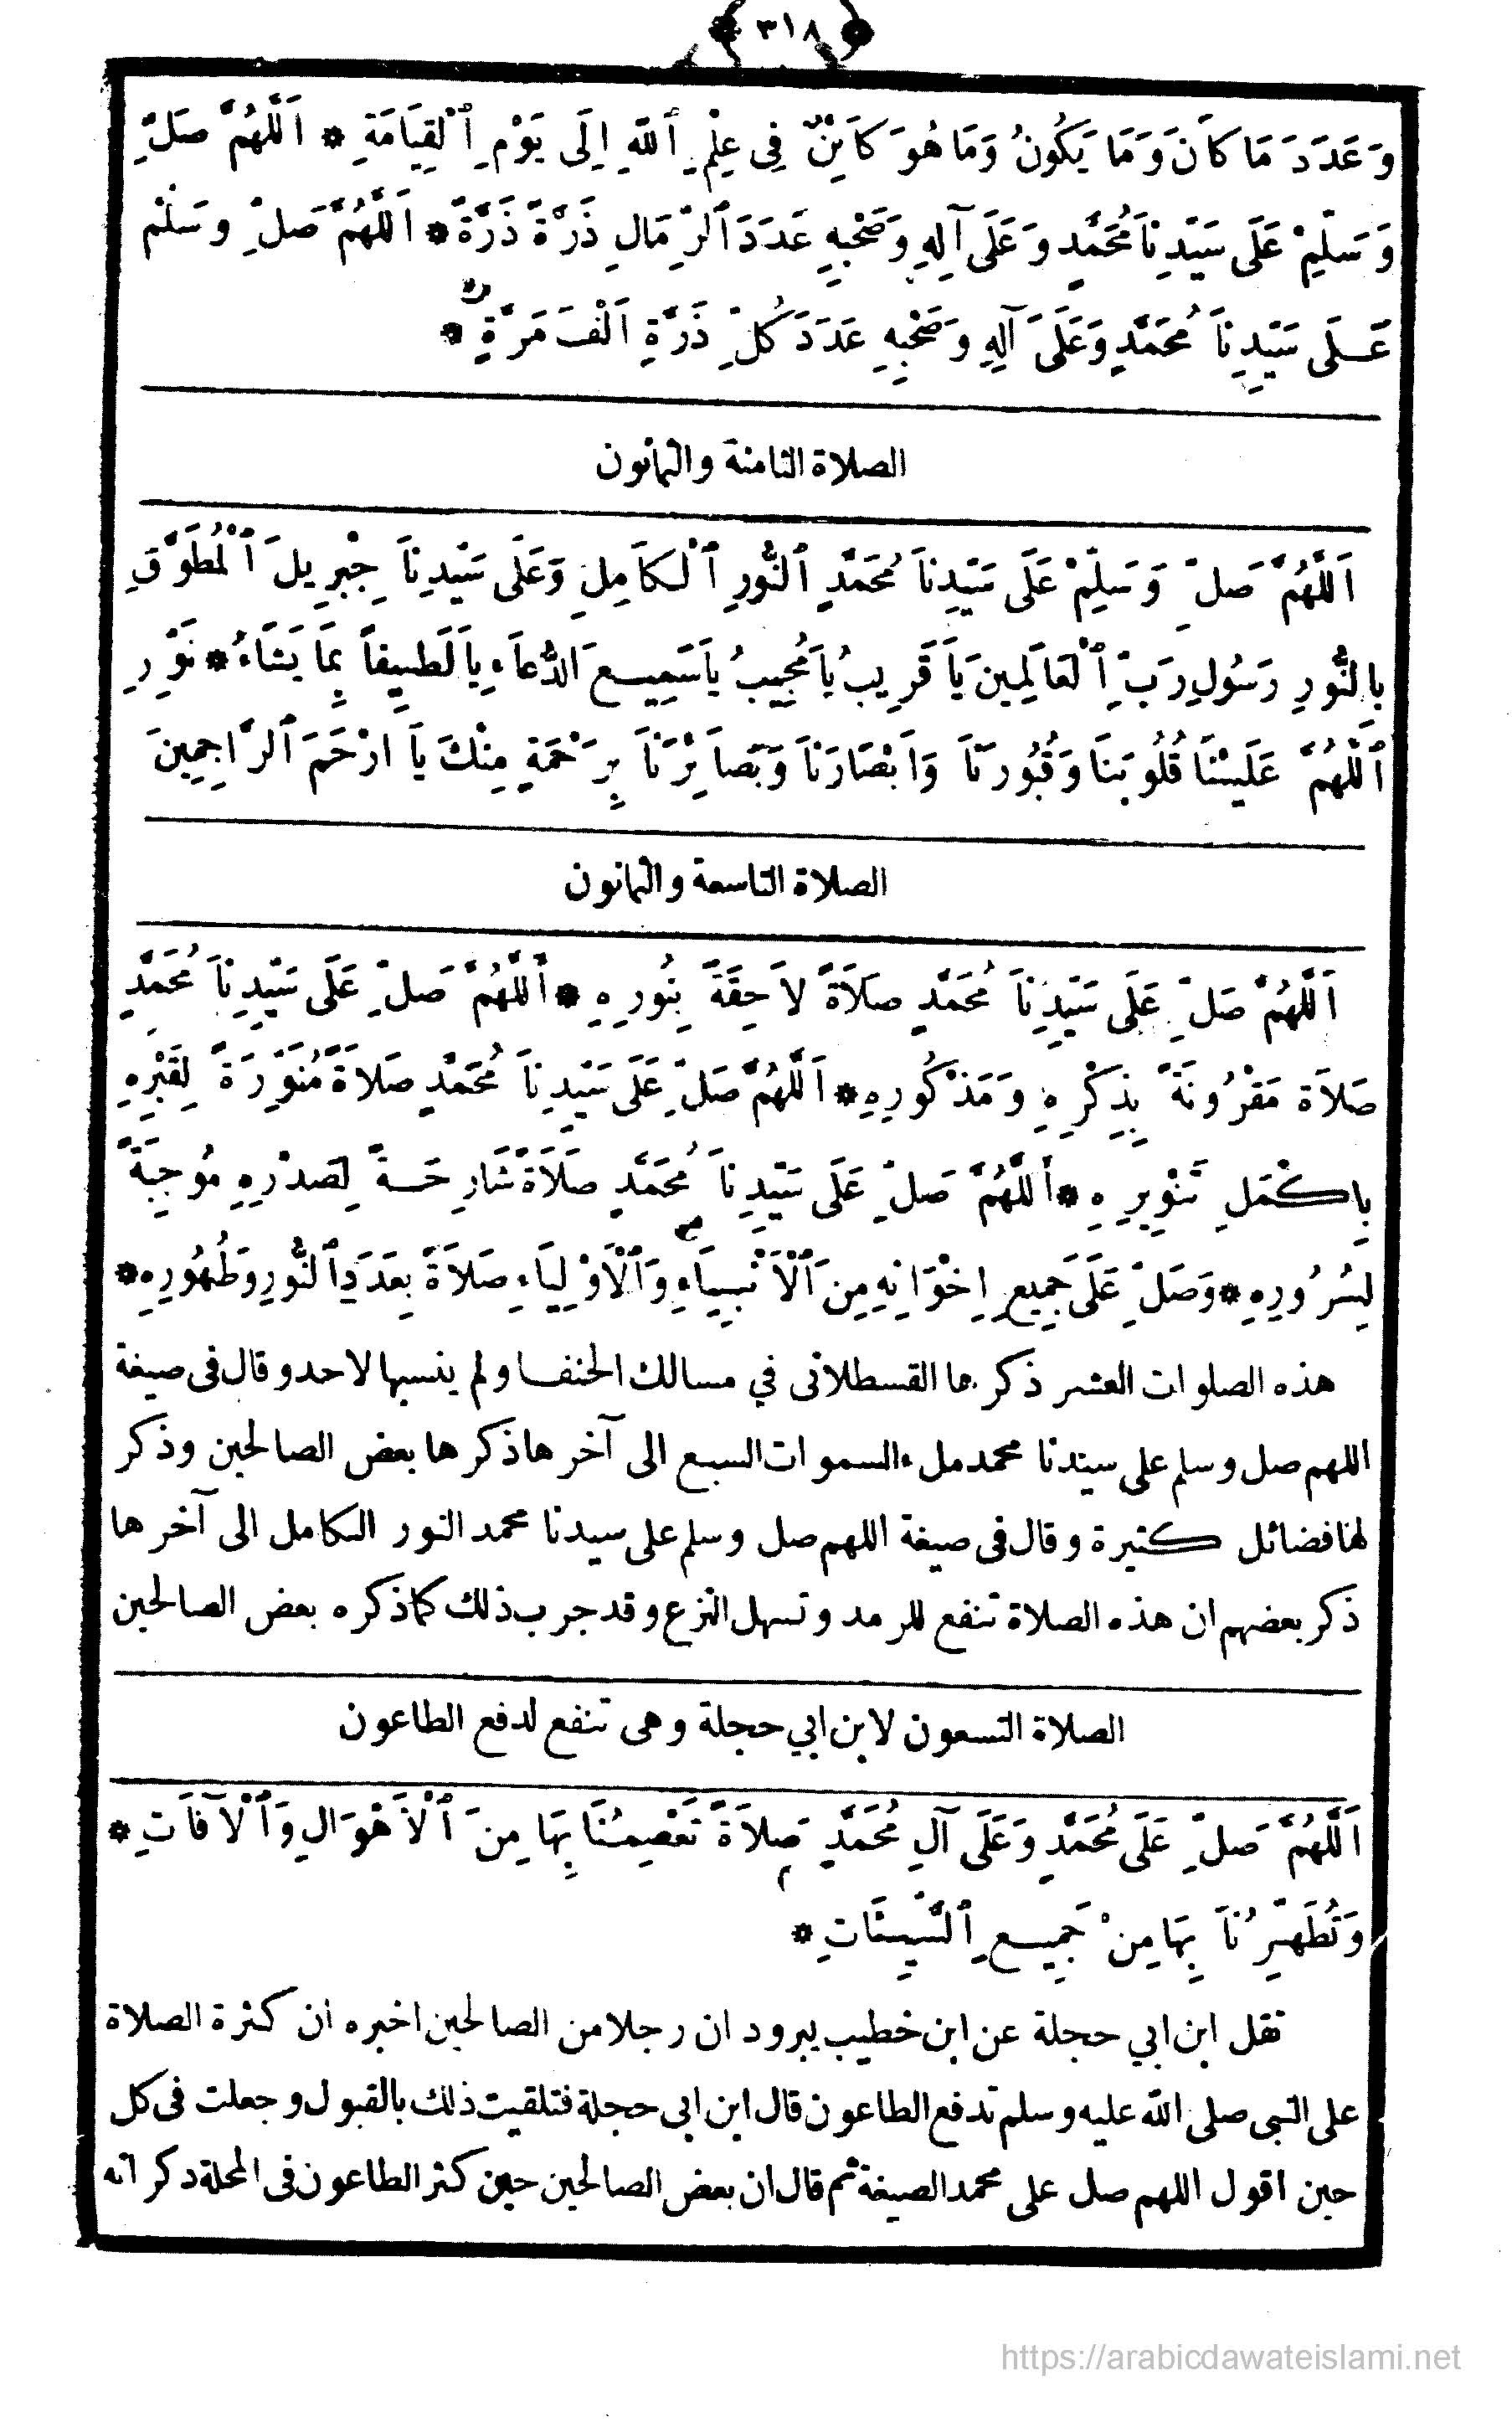 ﴿ ٣١٨ ﴾
وَعَدَدَ مَا كَانَ وَمَا يَكُونُ وَمَا هُوَ كَائِنٌ فِى عِلْمِ ٱللّٰهِ اِلَى يَوْمِ ٱلْقِيَامَةِ * اَللّٰهُمَّ صَلِّ
وَسَلِّمْ عَلَى سَيِّدِنَا مُحَمَّدٍ وَعَلَى آلِهِ وَصَحْبِهِ عَدَدَ ٱلرِّمَالِ ذَرَّةً ذَرَّةً * اَللّٰهُمَّ صَلِّ وسَلِّمْ
عَلَى سَيِّدِنَا مُحَمَّدٍ وَعَلَى آلِهِ وَصَحْبِهِ عَدَدَ كُلِّ ذَرَّةٍ اَلْفَ مَرَّةٍ *
الصلاة الثامنة والثمانون
اَللّٰهُمَّ صَلِّ وَسَلِّمْ عَلَى سَيِّدِنَا مُحَمَّدٍ ٱلنُّورِ ٱلْكَامِلِ وَعَلَى سَيِّدِنَا جِبْرِيلَ ٱلْمُطَوَّقِ
بِالنُّورِ رَسُولِ رَبِّ ٱلْعَالَمِينَ يَا قَرِيبُ يَا مُجِيبُ يَا سَمِيعَ الدُّعَاءِ يَا لَطِيفاً بِمَا يَشَاءُ * نَوِّرِ
ٱللّٰهُمَّ عَلَيْنَا قُلُوبَنَا وَقُبُورَنَا وَاَبْصَارَنَا وَبَصَائِرَنَا بِرَحْمَةٍ مِنْكَ يَا ارْحَمَ ٱلرَّاحِمِينَ
الصلاة التاسعة والثمانون
اَللّٰهُمَّ صَلِّ عَلَى سَيِّدِنَا مُحَمَّدٍ صَلَاةً لَاحِقَةً بِنُورِهِ * اَللّٰهُمَّ صَلِّ عَلَى سَيِّدِنَا مُحَمَّدٍ
صَلَاةً مَقْرُونَةً بِذِكْرِهِ وَمَذْكُورِهِ * اَللّٰهُمَّ صَلِّ عَلَى سَيِّدِنَا مُحَمَّدٍ صَلَاةً مُنَوِّرَةً لِقَبْرِهِ
بِاَكْمَلِ تَنْوِيرِهِ * اَللّٰهُمَّ صَلِّ عَلَى سَيِّدِنَا مُحَمَّدٍ صَلَاةً شَارِحَةً لِصَدْرِهِ مُوجِبَةً
لِسُرُورِهِ * وَصَلِّ عَلَى جَمِيعِ اِخْوَانِهِ مِنَ ٱلْاَنْبِيَاءِ وَٱلْاَوْلِيَاءِ صَلَاةً بِعَدَدِ ٱلنُّورِ وَظُهُورِهِ *
هذه الصلوات العشر ذكرها القسطلانى في مسالك الحنفا ولم ينسبها لاحد وقال فى صيغة
اللهم صل وسلم على سيدنا محمد ملء السموات السبع الى آخرها ذكرها بعض الصالحين وذكر
لها فضائل كثيرة وقال فى صيغة اللهم صل وسلم على سيدنا محمد النور الكامل الى آخرها
ذكر بعضهم ان هذه الصلاة تنفع للرمد وتسهل النزع وقد جرب ذلك كما ذكره بعض الصالحين
الصلاة التسعون لابن ابي حجلة وهى تنفع لدفع الطاعون
اَللّٰهُمَّ صَلِّ عَلَى مُحَمَّدٍ وَعَلَى آلِ مُحَمَّدٍ صَلَاةً تَعْصِمُنَا بِهَا مِنَ ٱلْاَهْوَالِ وَٱلْآفَاتِ *
وَتُطَهِّرُنَا بِهَا مِنْ جَمِيعِ ٱلسَّيِّئَاتِ *
نقل ابن ابي حجلة عن ابن خطيب يبرود ان رجلا من الصالحين اخبره ان كثرة الصلاة
على النبى صلى الله عليه وسلم تدفع الطاعون قال ابن ابى حجلة فتلقيت ذلك بالقبول وجعلت فى كل
حين اقول اللهم صل على محمد الصيغة ثم قال ان بعض الصالحين حين كثر الطاعون فى المحلة ذكر انه
https://arabicdawateislami.net